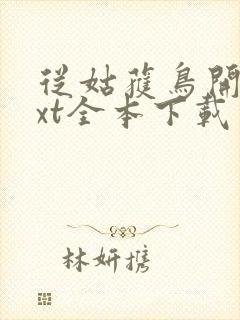 從姑蒦鳥開
xt全本下載
林妍携